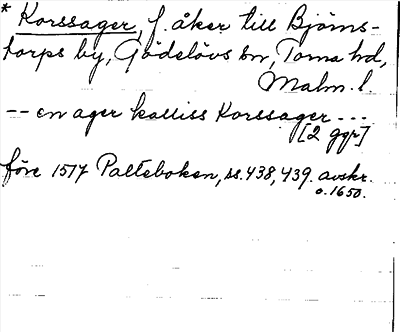 * Korssager, f. åker till Björns-
torps by, Gödelövs sn, Torna hd,
Malm. l.
-- en ager kalliss Korssager ---
[2 ggr]
före 1517 Palteboken, ss. 438, 439. avskr.
o. 1650.